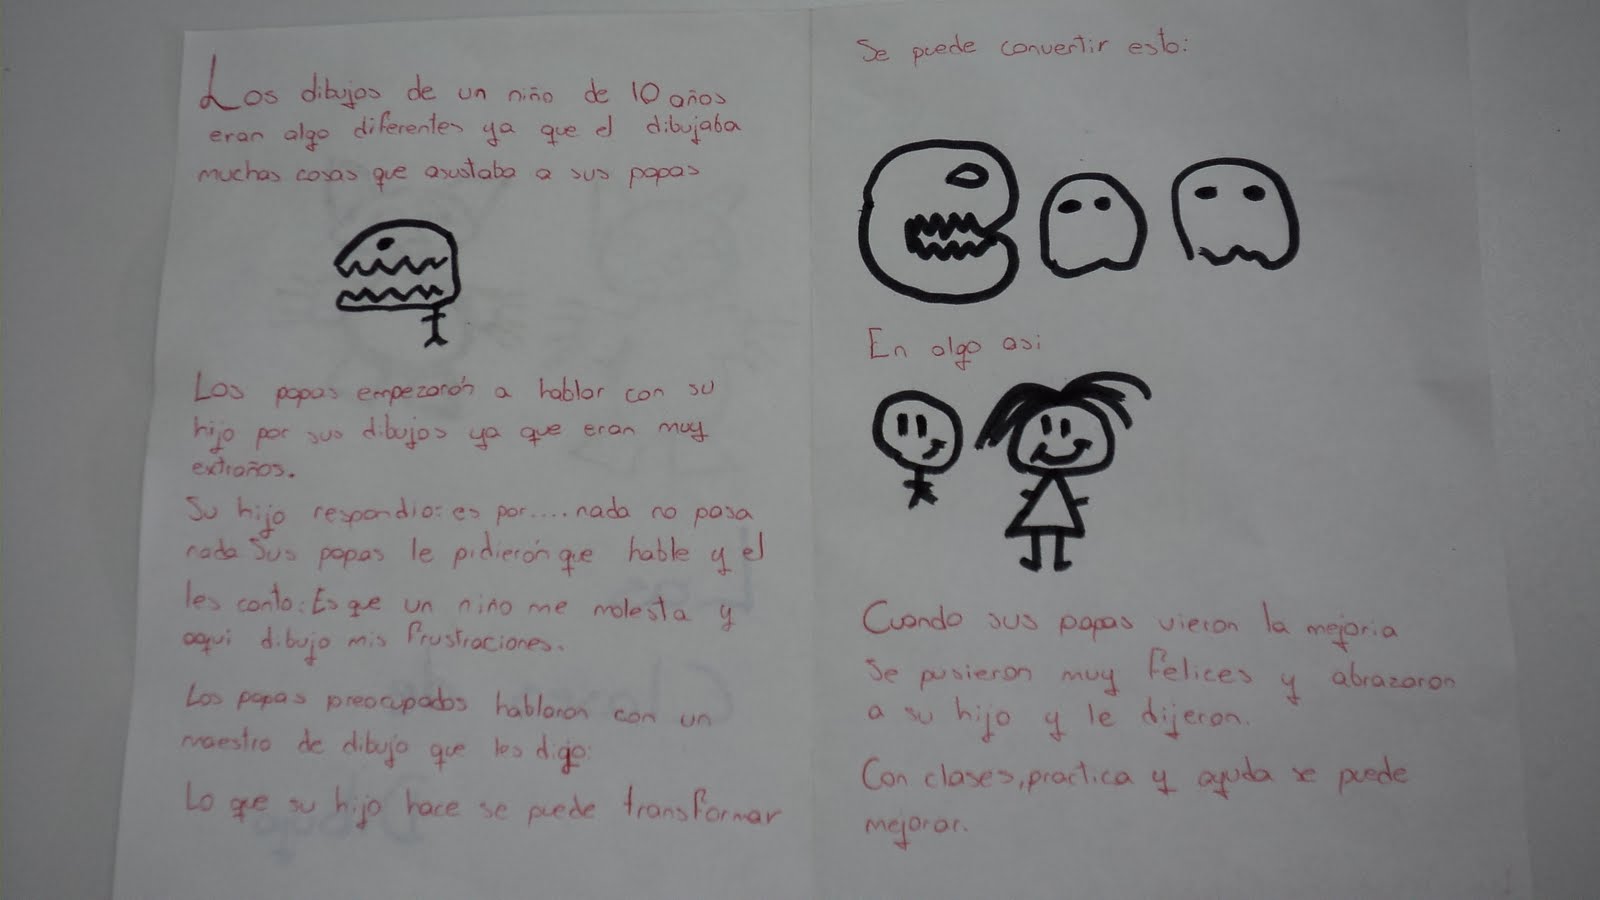 Los dibujos de un niño de 10 años
eran algo diferentes ya que el dibujaba
muchas cosas que asustaba a sus papas
Los papas empezarón a hablar con su
hijo por sus dibujos ya que eran muy
extraños.
Su hijo respondio: es por....nada no pasa
nada Sus papas le pidierón que hable y el
les conto: Es que un niño me molesta y
aqui dibujo mis frustraciones.
Los papas preocupados hablaron con un
maestro de dibujo que les digo:
Lo que su hijo hace se puede transformar
Se puede convertir esto:
En algo asi
Cuando sus papas vieron la mejoria
se pusieron muy felices y abrazaron
a su hijo y le dijeron.
Con clases, practica y ayuda se puede
mejorar.